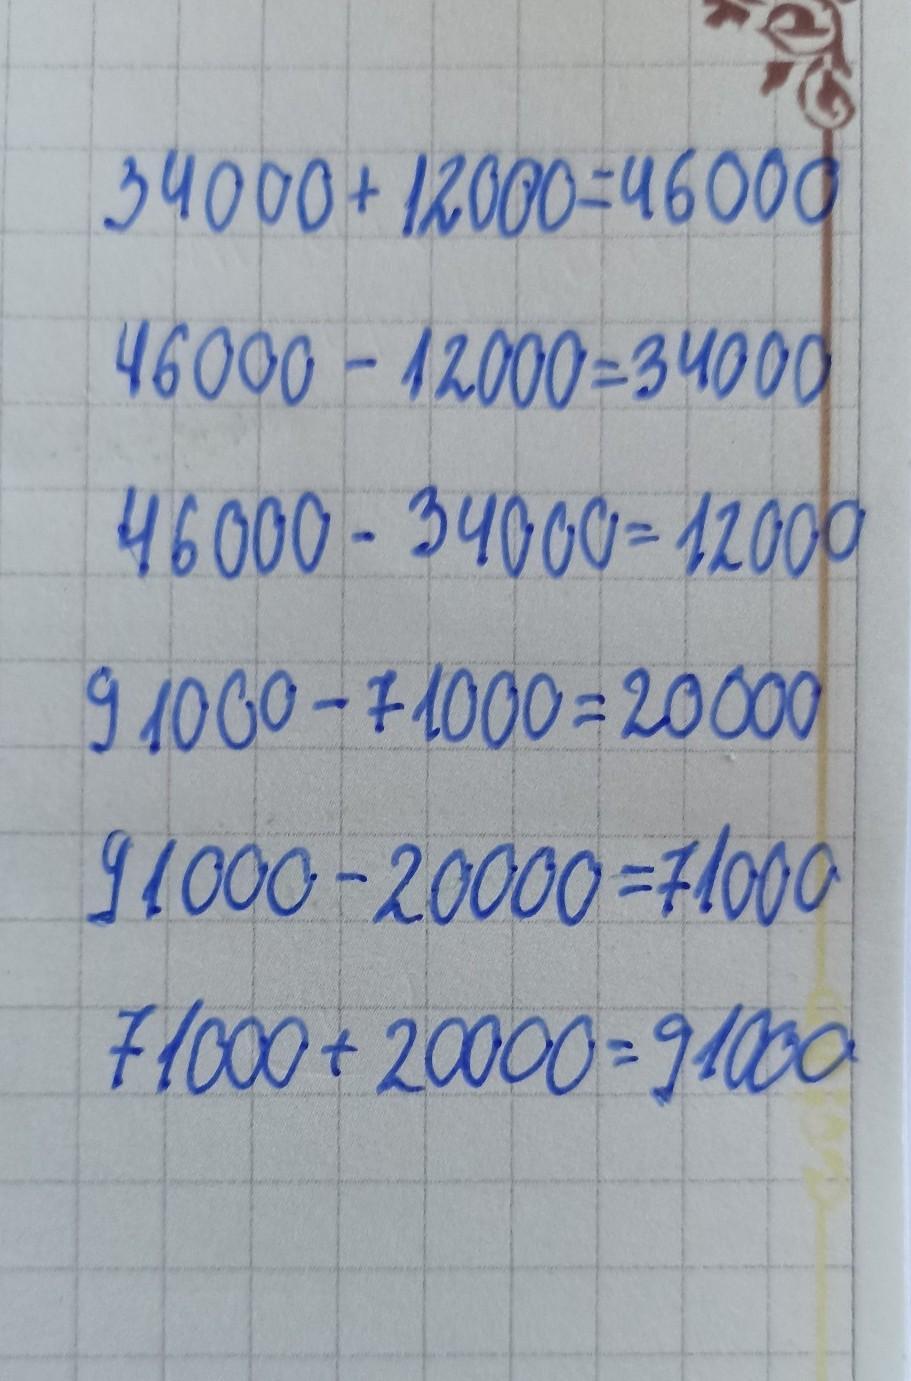 34000 + 12000 = 46000
46000 - 12000 = 34000
46000 - 34000 = 12000
91000 - 71000 = 20000
91000 - 20000 = 71000
71000 + 20000 = 91000